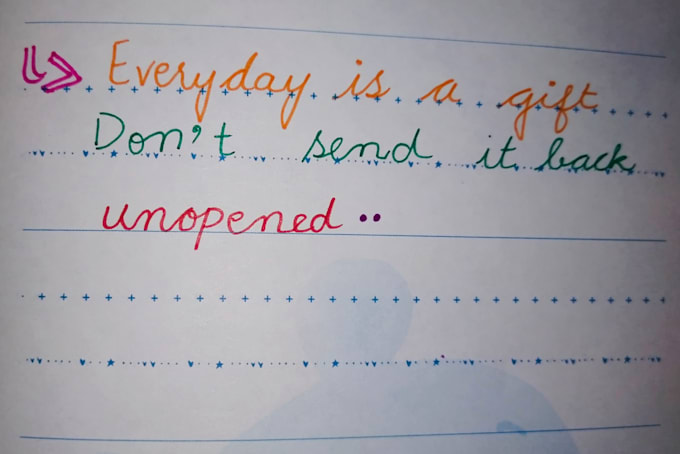 Everyday is a gift
Don't send it back
unopened..